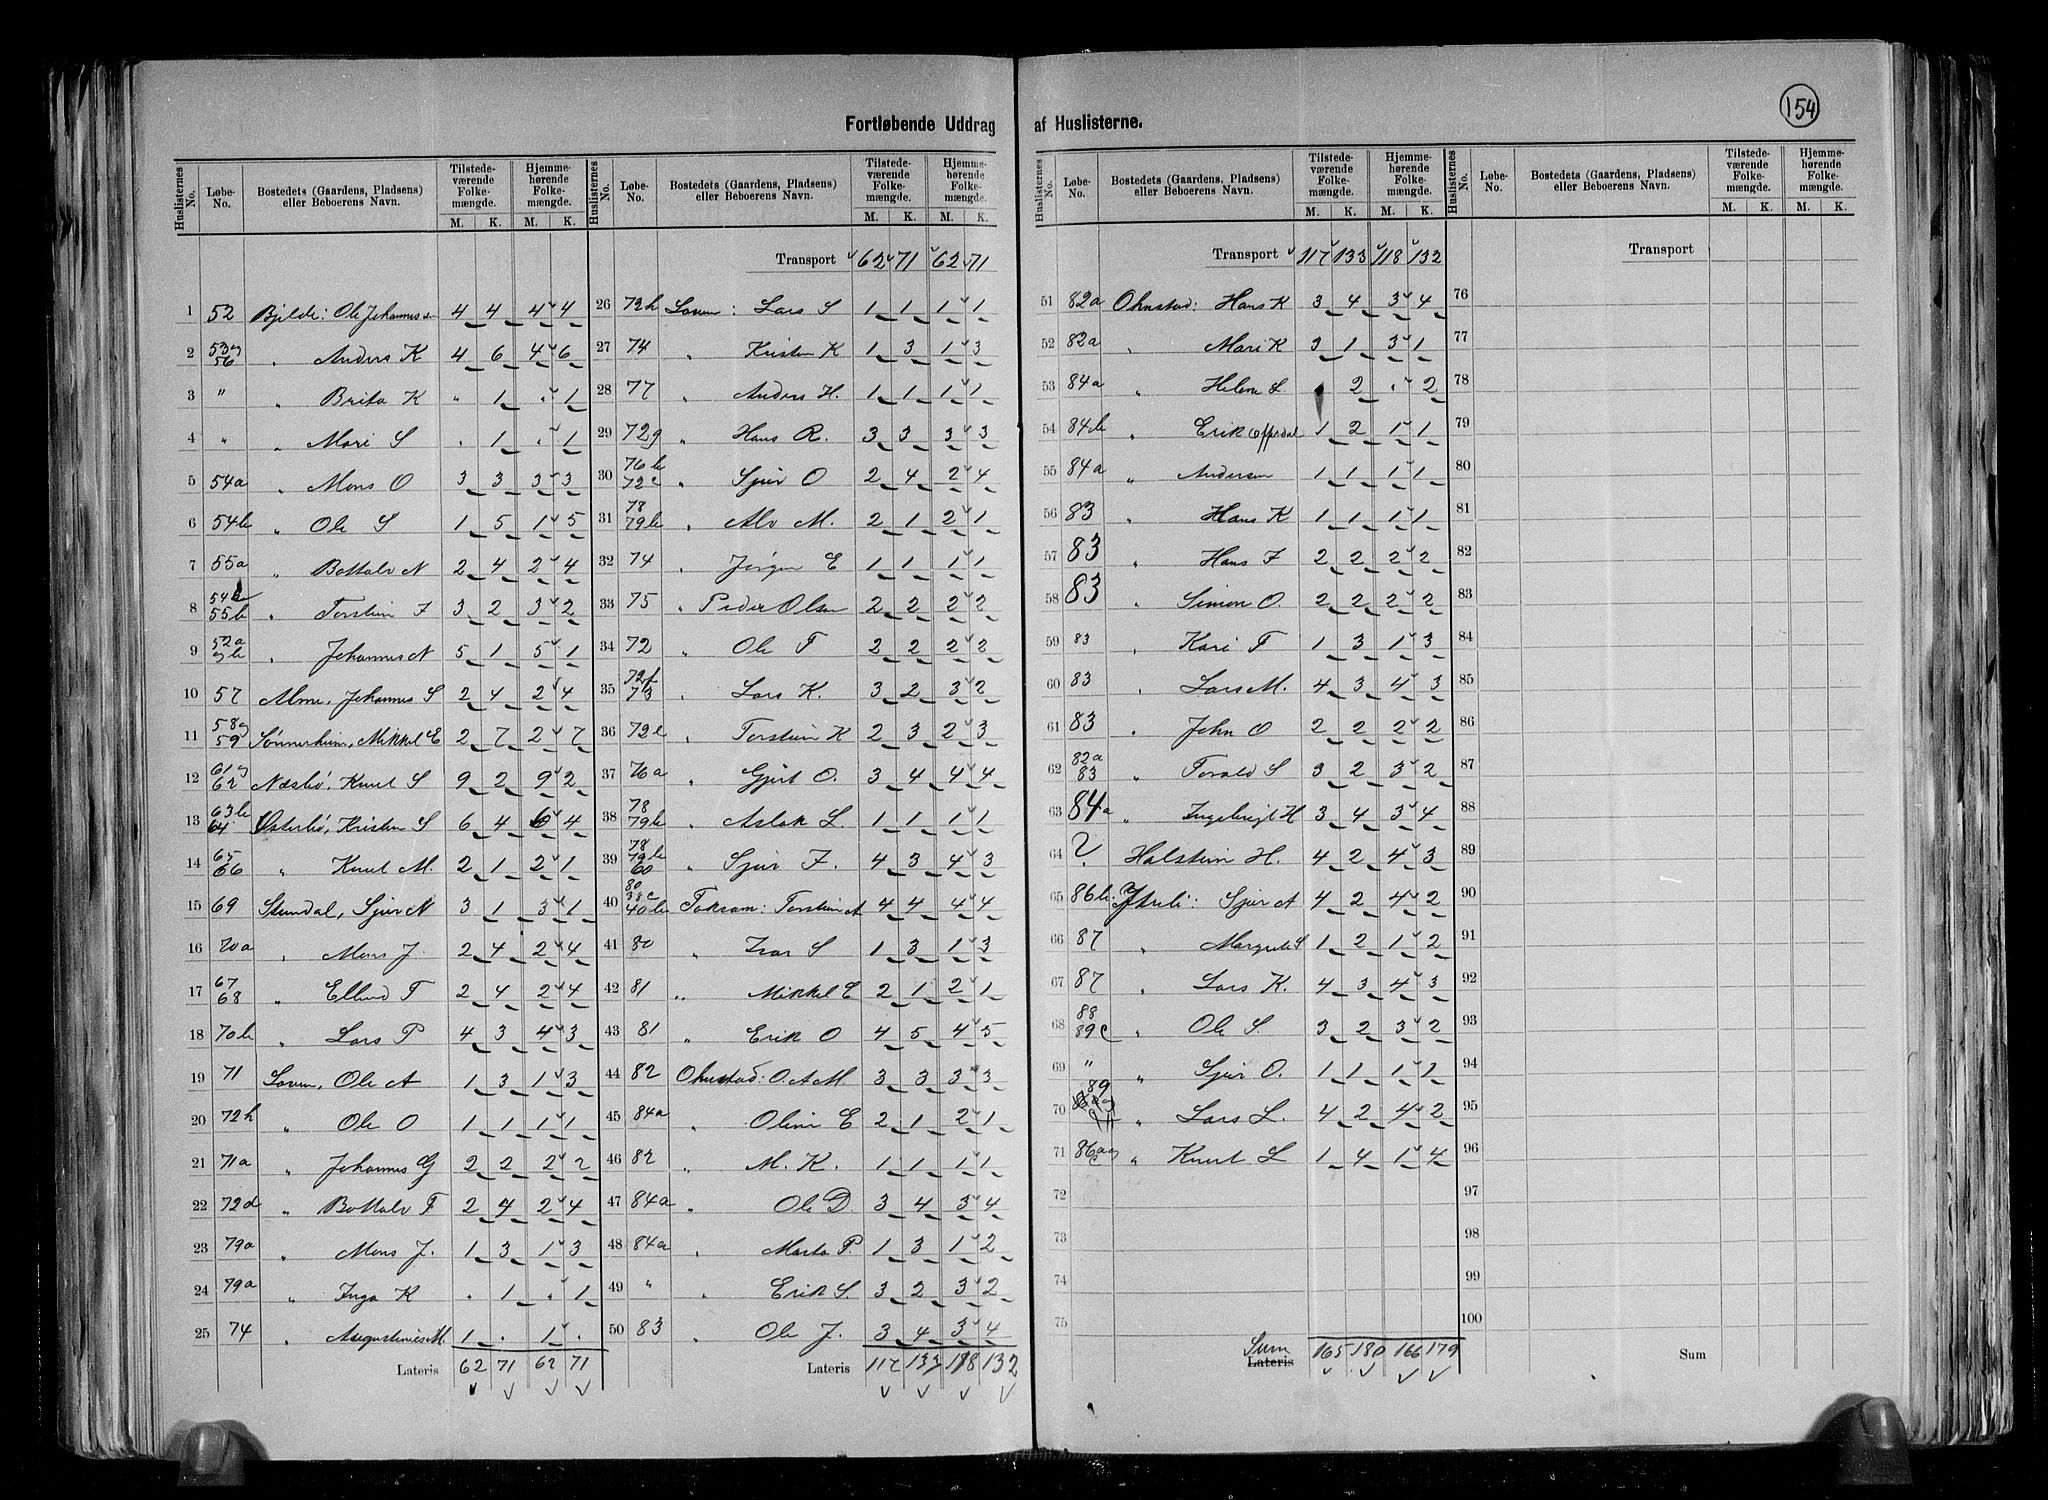 154
Fortløbende Uddrag af Huslisterne.
Huslisternes No. Løbe-No. Bostedets (Gaardens, Pladsens) eller Beboerens Navn. Tilstedeværende Folkemængde. M. K. Hjemmehørende Folkemængde. M. K.
1 52 Bjelde: Ole Johannes 4 4 4 4
2 53 og 56 " Anders K 4 6 4 6
3 " " Brita K " 1 " 1
4 " " Mari S . 1 . 1
5 54a " Mons O 3 3 3 3
6 54b " Ole S 1 5 1 5
7 55a " Bottolv N 2 4 2 4
8 54b 55b " Torstein J 3 2 3 2
9 52a og b " Johannes N 5 1 5 1
10 57 Alme, Johannes S 2 4 2 4
11 58 og 59 Sønnerheim, Mikkel E 2 7 2 7
12 61 og 62 Næsbø, Knut S 9 2 9 2
13 63b 64 Østerbø, Kristen S 6 4 6 4
14 65 66 " Knut M. 2 1 2 1
15 69 Stundal, Sjur N 3 1 3 1
16 70a " Mons J. 2 4 2 4
17 67 68 " Ellend T 2 4 2 4
18 70b " Lars P 4 3 4 3
19 71 Loven, Ole A 1 3 1 3
20 72h " Ole O 1 1 1 1
21 71a " Johannes G 2 2 2 2
22 72d " Bottolv T 2 4 2 4
23 79a " Mons J. 1 3 1 3
24 79a " Inga K . 1 . 1
25 74 " Augustinius M. 1 . 1 .
Lateris 62 71 62 71
Huslisternes No. Løbe-No. Bostedets (Gaardens, Pladsens) eller Beboerens Navn. Tilstedeværende Folkemængde. M. K. Hjemmehørende Folkemængde. M. K.
Transport 62 71 62 71
26 72h Loven: Lars S 1 1 1 1
27 74 " Kristen K 1 3 1 3
28 77 " Anders H. 1 1 1 1
29 72g " Hans R. 3 3 3 3
30 76b 72c " Sjur O 2 4 2 4
31 78 79b " Alv M. 2 1 2 1
32 74 " Jørgen E 1 1 1 1
33 75 " Peder Olsen 2 2 2 2
34 72 " Ole T 2 2 2 2
35 72f 73 " Lars K. 3 2 3 2
36 72e " Torstein K 2 3 2 3
37 76a " Gjert O. 3 4 4 4
38 78 79b " Aslak L. 1 1 1 1
39 78 79b 60 " Sjur J. 4 3 4 3
40 80 38c 40b Toksam: Torstein A 4 4 4 4
41 80 " Ivar S 1 3 1 3
42 81 " Mikkel E 2 1 2 1
43 81 " Erik O 4 5 4 5
44 82 Ohnstad: O. A M. 3 3 3 3
45 84a " Oline E 2 1 2 1
46 82 " M. K. 1 1 1 1
47 84a " Ole D. 3 4 3 4
48 84a " Marta P. 1 3 1 2
49 " " Erik S. 3 2 3 2
50 83 " Ole J. 3 4 3 4
Lateris 117 133 118 132
Huslisternes No. Løbe-No. Bostedets (Gaardens, Pladsens) eller Beboerens Navn. Tilstedeværende Folkemængde. M. K. Hjemmehørende Folkemængde. M. K.
Transport 117 133 118 132
51 82a Ohnstad: Hans K 3 4 3 4
52 82a " Mari K 3 1 3 1
53 84a " Helene L . 2 . 2
54 84b " Erik Offerdal 1 2 1 1
55 84a " Andersen 1 1 1 1
56 83 " Hans K 1 1 1 1
57 83 " Hans J 2 2 2 2
58 83 " Simon O. 2 2 2 2
59 83 " Kari T 1 3 1 3
60 83 " Lars M. 4 3 4 3
61 83 " John O 2 2 2 2
62 82a 83 " Torald S 3 2 3 2
63 84a " Ingebrigt H 3 4 3 4
64 ? Halstein H. 4 2 4 3
65 86b. Ytreli: Sjur A 4 2 4 2
66 87 " Margrete S 1 2 1 2
67 87 " Lars K. 4 3 4 3
68 88 89c " Ole S. 3 2 3 2
69 " " Sjur O. 1 1 1 1
70 89 " Lars L. 4 2 4 2
71 86a og c " Knut L 1 4 1 4
72
73
74
75
Sum Lateris 165 180 166 179
Huslisternes No. Løbe-No. Bostedets (Gaardens, Pladsens) eller Beboerens Navn. Tilstedeværende Folkemængde. M. K. Hjemmehørende Folkemængde. M. K.
Transport
76
77
78
79
80
81
82
83
84
85
86
87
88
89
90
91
92
93
94
95
96
97
98
99
100
Sum